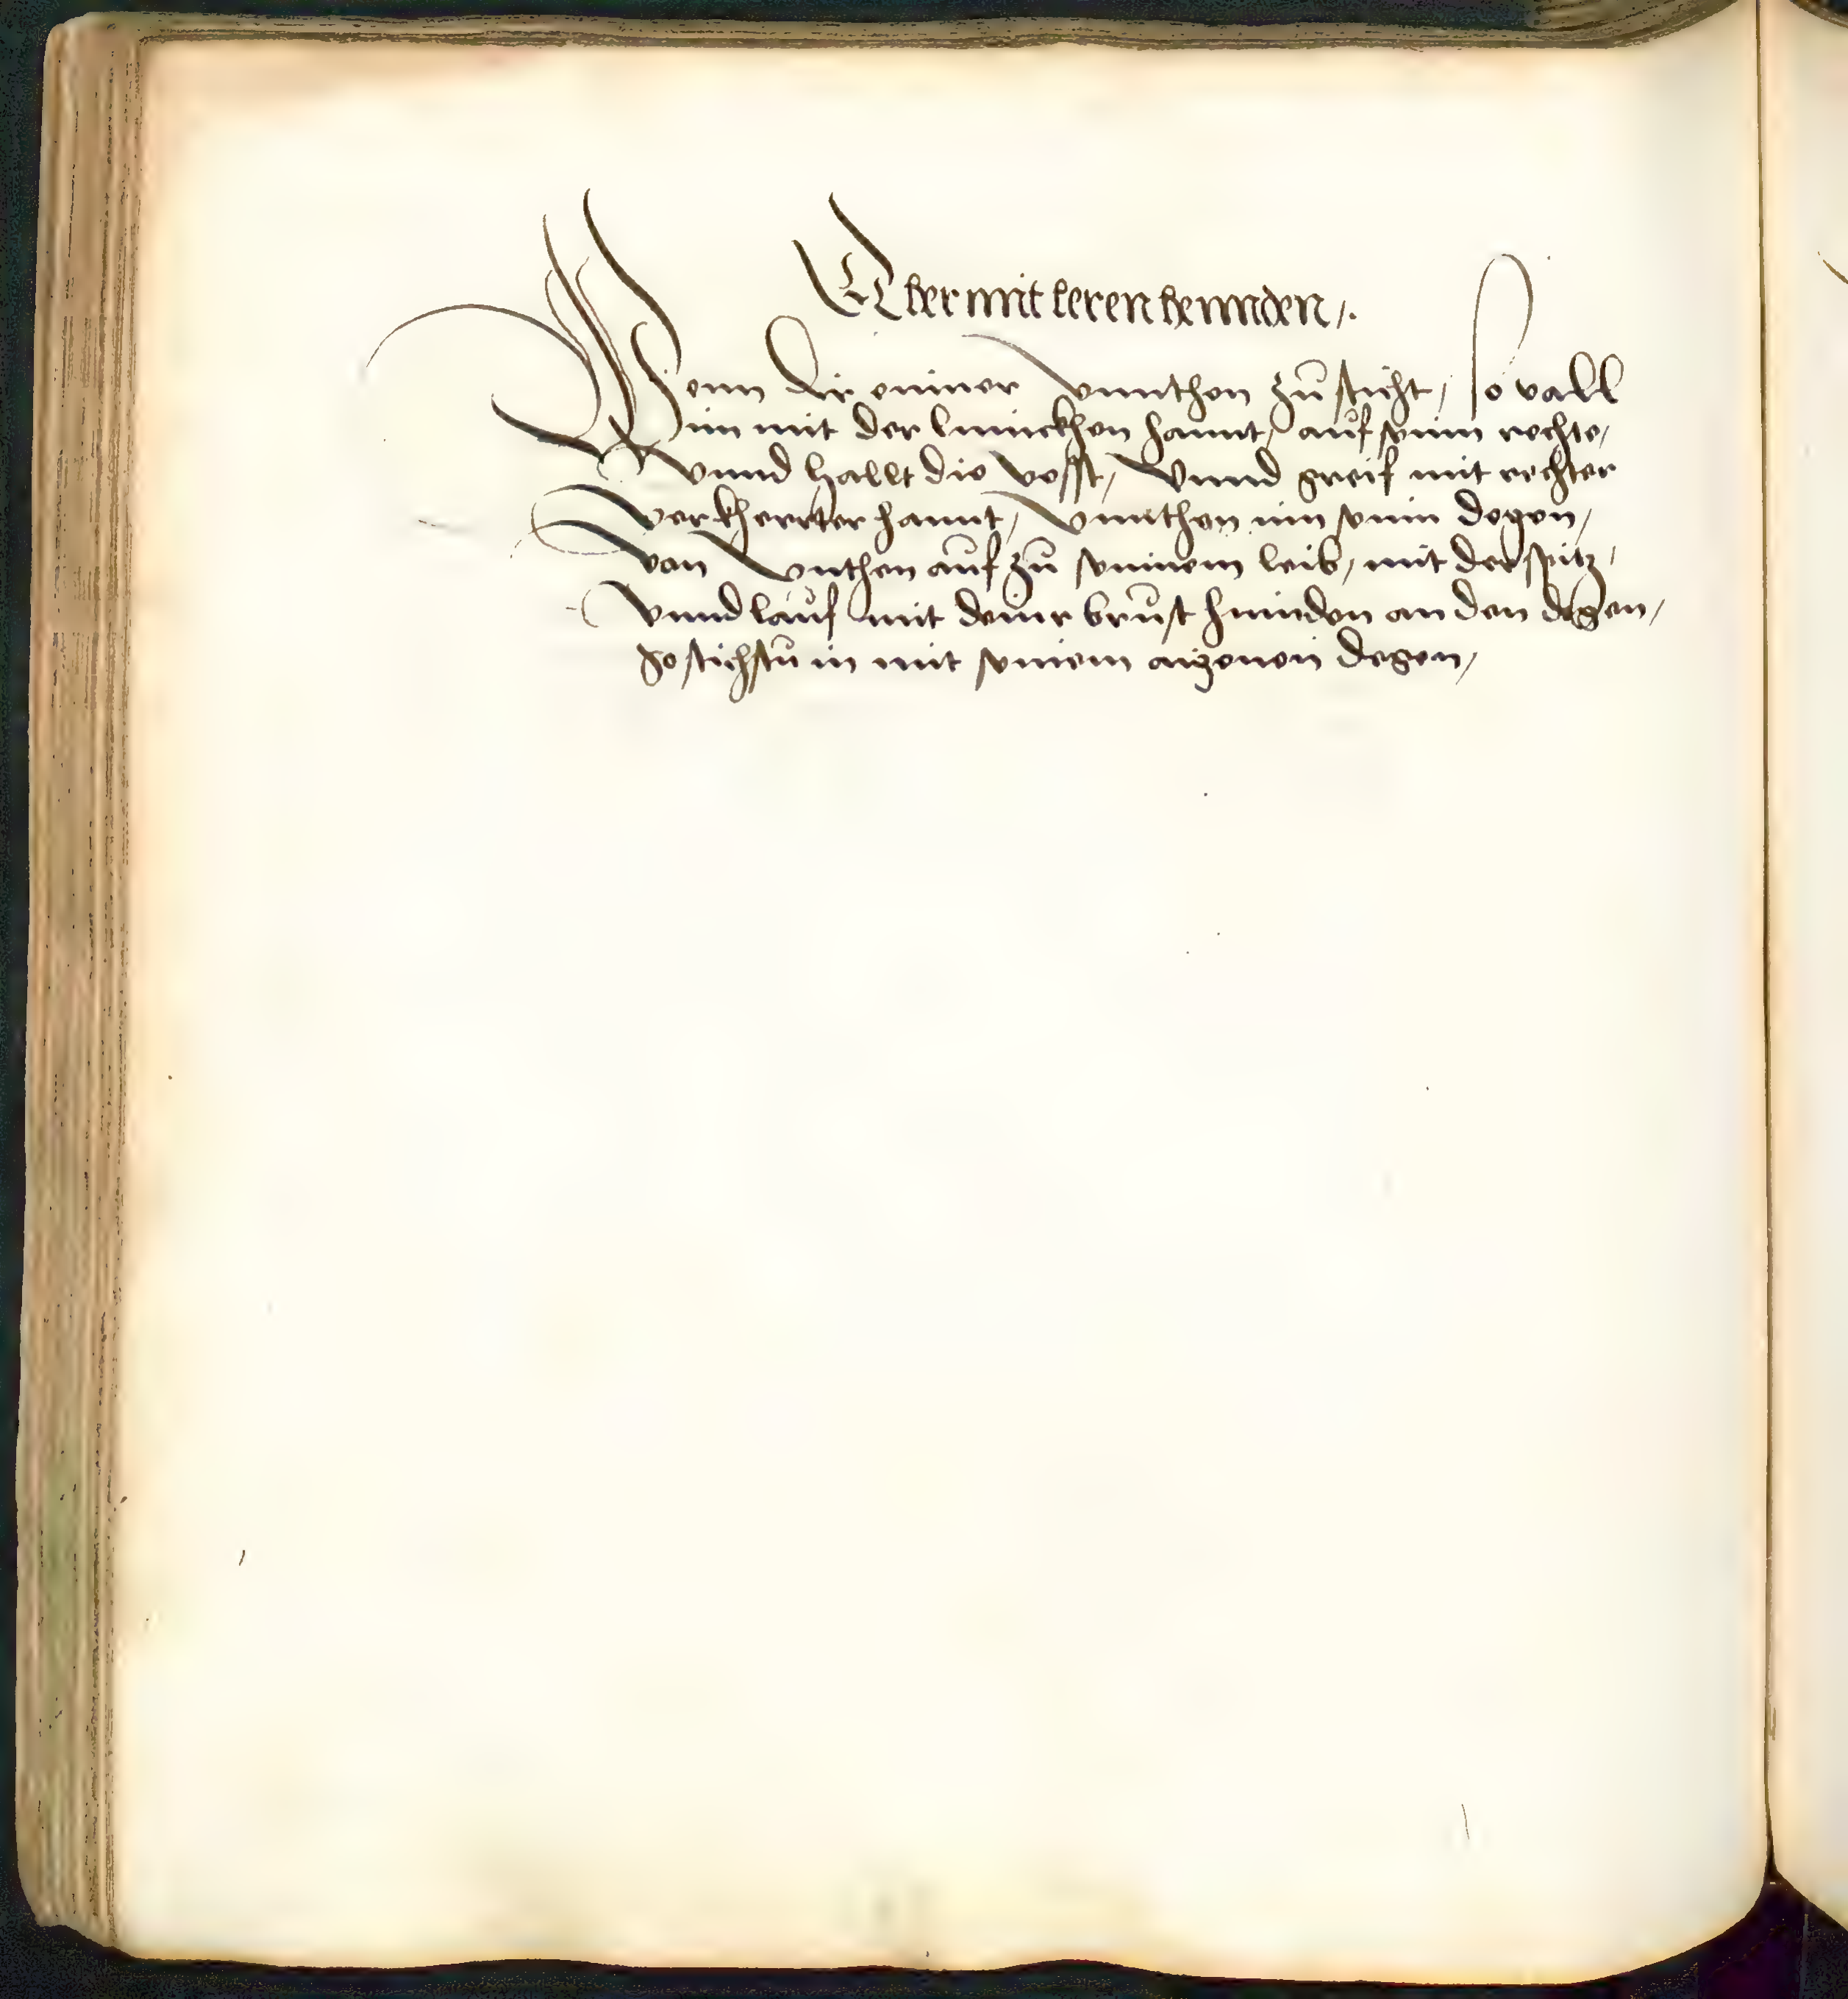 Aber mit leren henndenn /.
Wenn dir eniner vnnthen zů sticht / so vall
im mit der linnckhen hannt / aůf senin rechte /
vnnd hallt die vesst / vnnd greif mit rechter
verkherrter hannt / vnnthen inn senin degen /
von vnthen aůf zů seninem leib / mit der spitz /
vnnd laůf mit deinr brůst hinnden an den degen /
so stichstů in mit seniem aigenen degen /